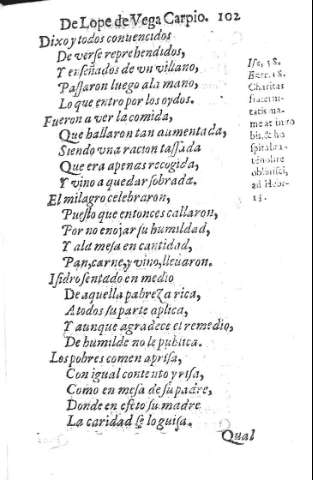 De Lope de Vega Carpio. 102
Dixo y todos conuencidos
De verse reprehendidos,
Y enseñados de vn villano,
Passaron luego a la mano,
Lo que entro por los oydos.
Fueron a ver la comida,
Que hallaron tan aumentada,
Siendo vna racion tassada
Que era apenas recogida,
Y vino a quedar sobrada.
El milagro celebraron,
Puesto que entonces callaron,
Por no enojar su humildad,
Y a la mesa en cantidad,
Pan, carne, y vino, lleuaron.
Isidro sentado en medio
De aquella pobreza rica,
A todos su parte aplica,
Y aunque agradece el remedio,
De humilde no le publica.
Los pobres comen aprisa,
Con igual contento y risa,
Como en mesa de su padre,
Donde en efeto su madre
La caridad se lo guisa.
Qual
18.
Charitas
fraterni-
tatis ma-
neat in vo
bis, & ho
spitalita-
tē nolite
obliuisci,
ad Hebr
13.